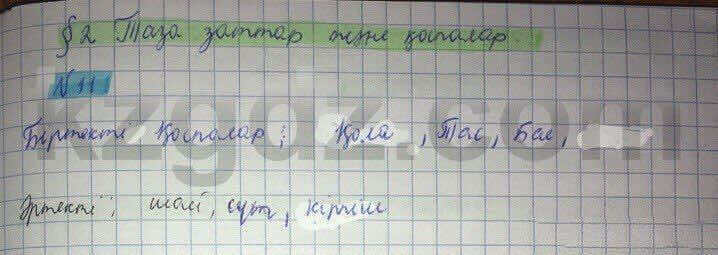 § 2 Таза заттар және қоспалар.
№ 11
Біртекті Қоспалар; Қола, Тас, Бал,
Әртекті; шай, сүт, кірпіш
kzgdz.com